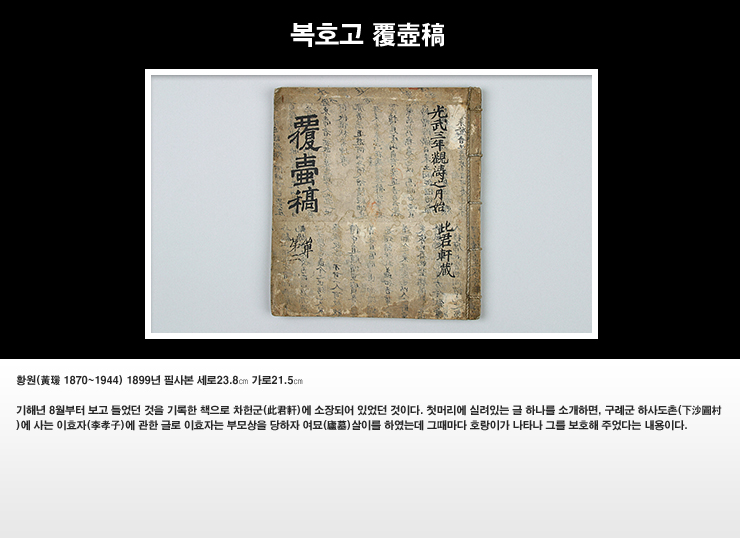 복호고 覆壺稿
光武三年觀濤之月始
此君軒藏
覆壺稿
황원(黃瑗 1870~1944) 1899년 필사본 세로23.8㎝ 가로21.5㎝
기해년 8월부터 보고 들었던 것을 기록한 책으로 차헌군(此君軒)에 소장되어 있었던 것이다. 첫머리에 실려있는 글 하나를 소개하면, 구례군 하사도촌(下沙圖村
)에 사는 이효자(李孝子)에 관한 글로 이효자는 부모상을 당하자 여묘(廬墓)살이를 하였는데 그때마다 호랑이가 나타나 그를 보호해 주었다는 내용이다.